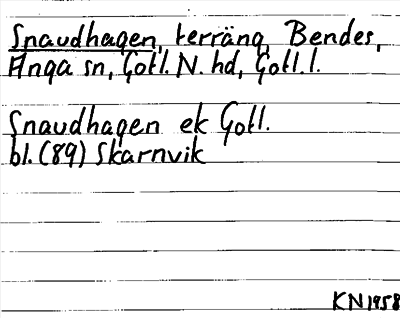 Snaudhagen, terräng, Bendes,
Anga sn, Gotl. N. hd, Gotl. l.
Snaudhagen ek Gotl.
bl. (89) Skarnvik
KN 1958